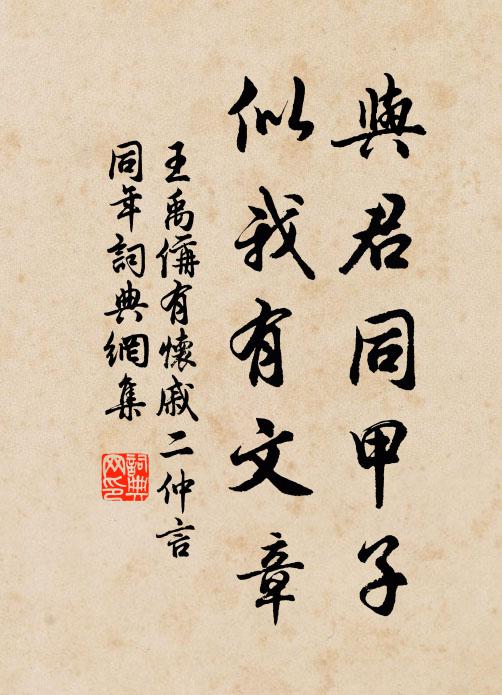 與君同甲子
似我有文章
王禹偁有懷戚二仲言
同年詞典網集
詞典
網印